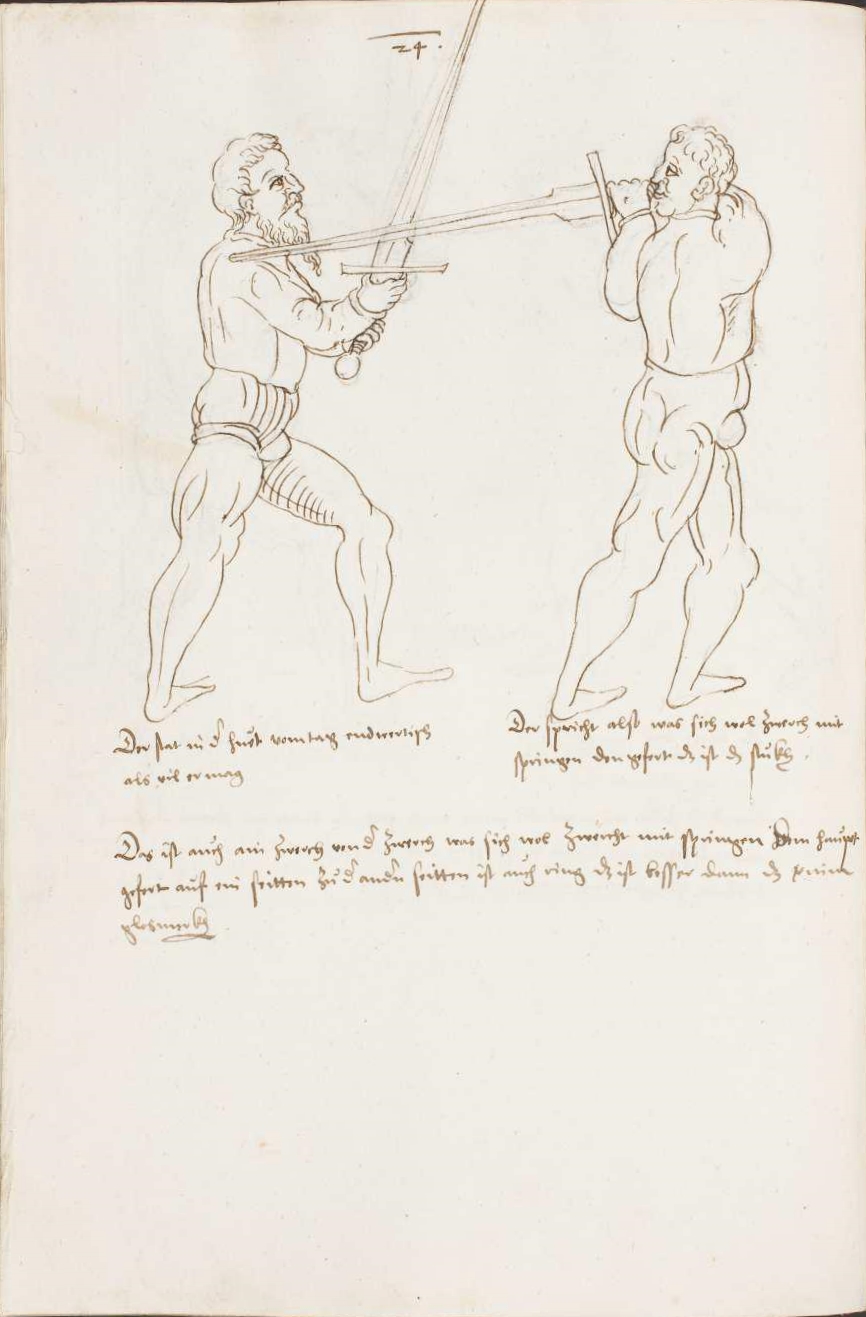 24.
Der stat in d' huet vom tag endwertish
als vil er mag
Der spricht also was sich wol zwerch mit
springen den gefert dz ist dz stukh.
Das ist auch ain zwerch von d' zwerch was sich wol zwercht mit springen dem haupt
gefert auf ein seitten zu d' andn seitten ist auch ring dz ist besser dann dz